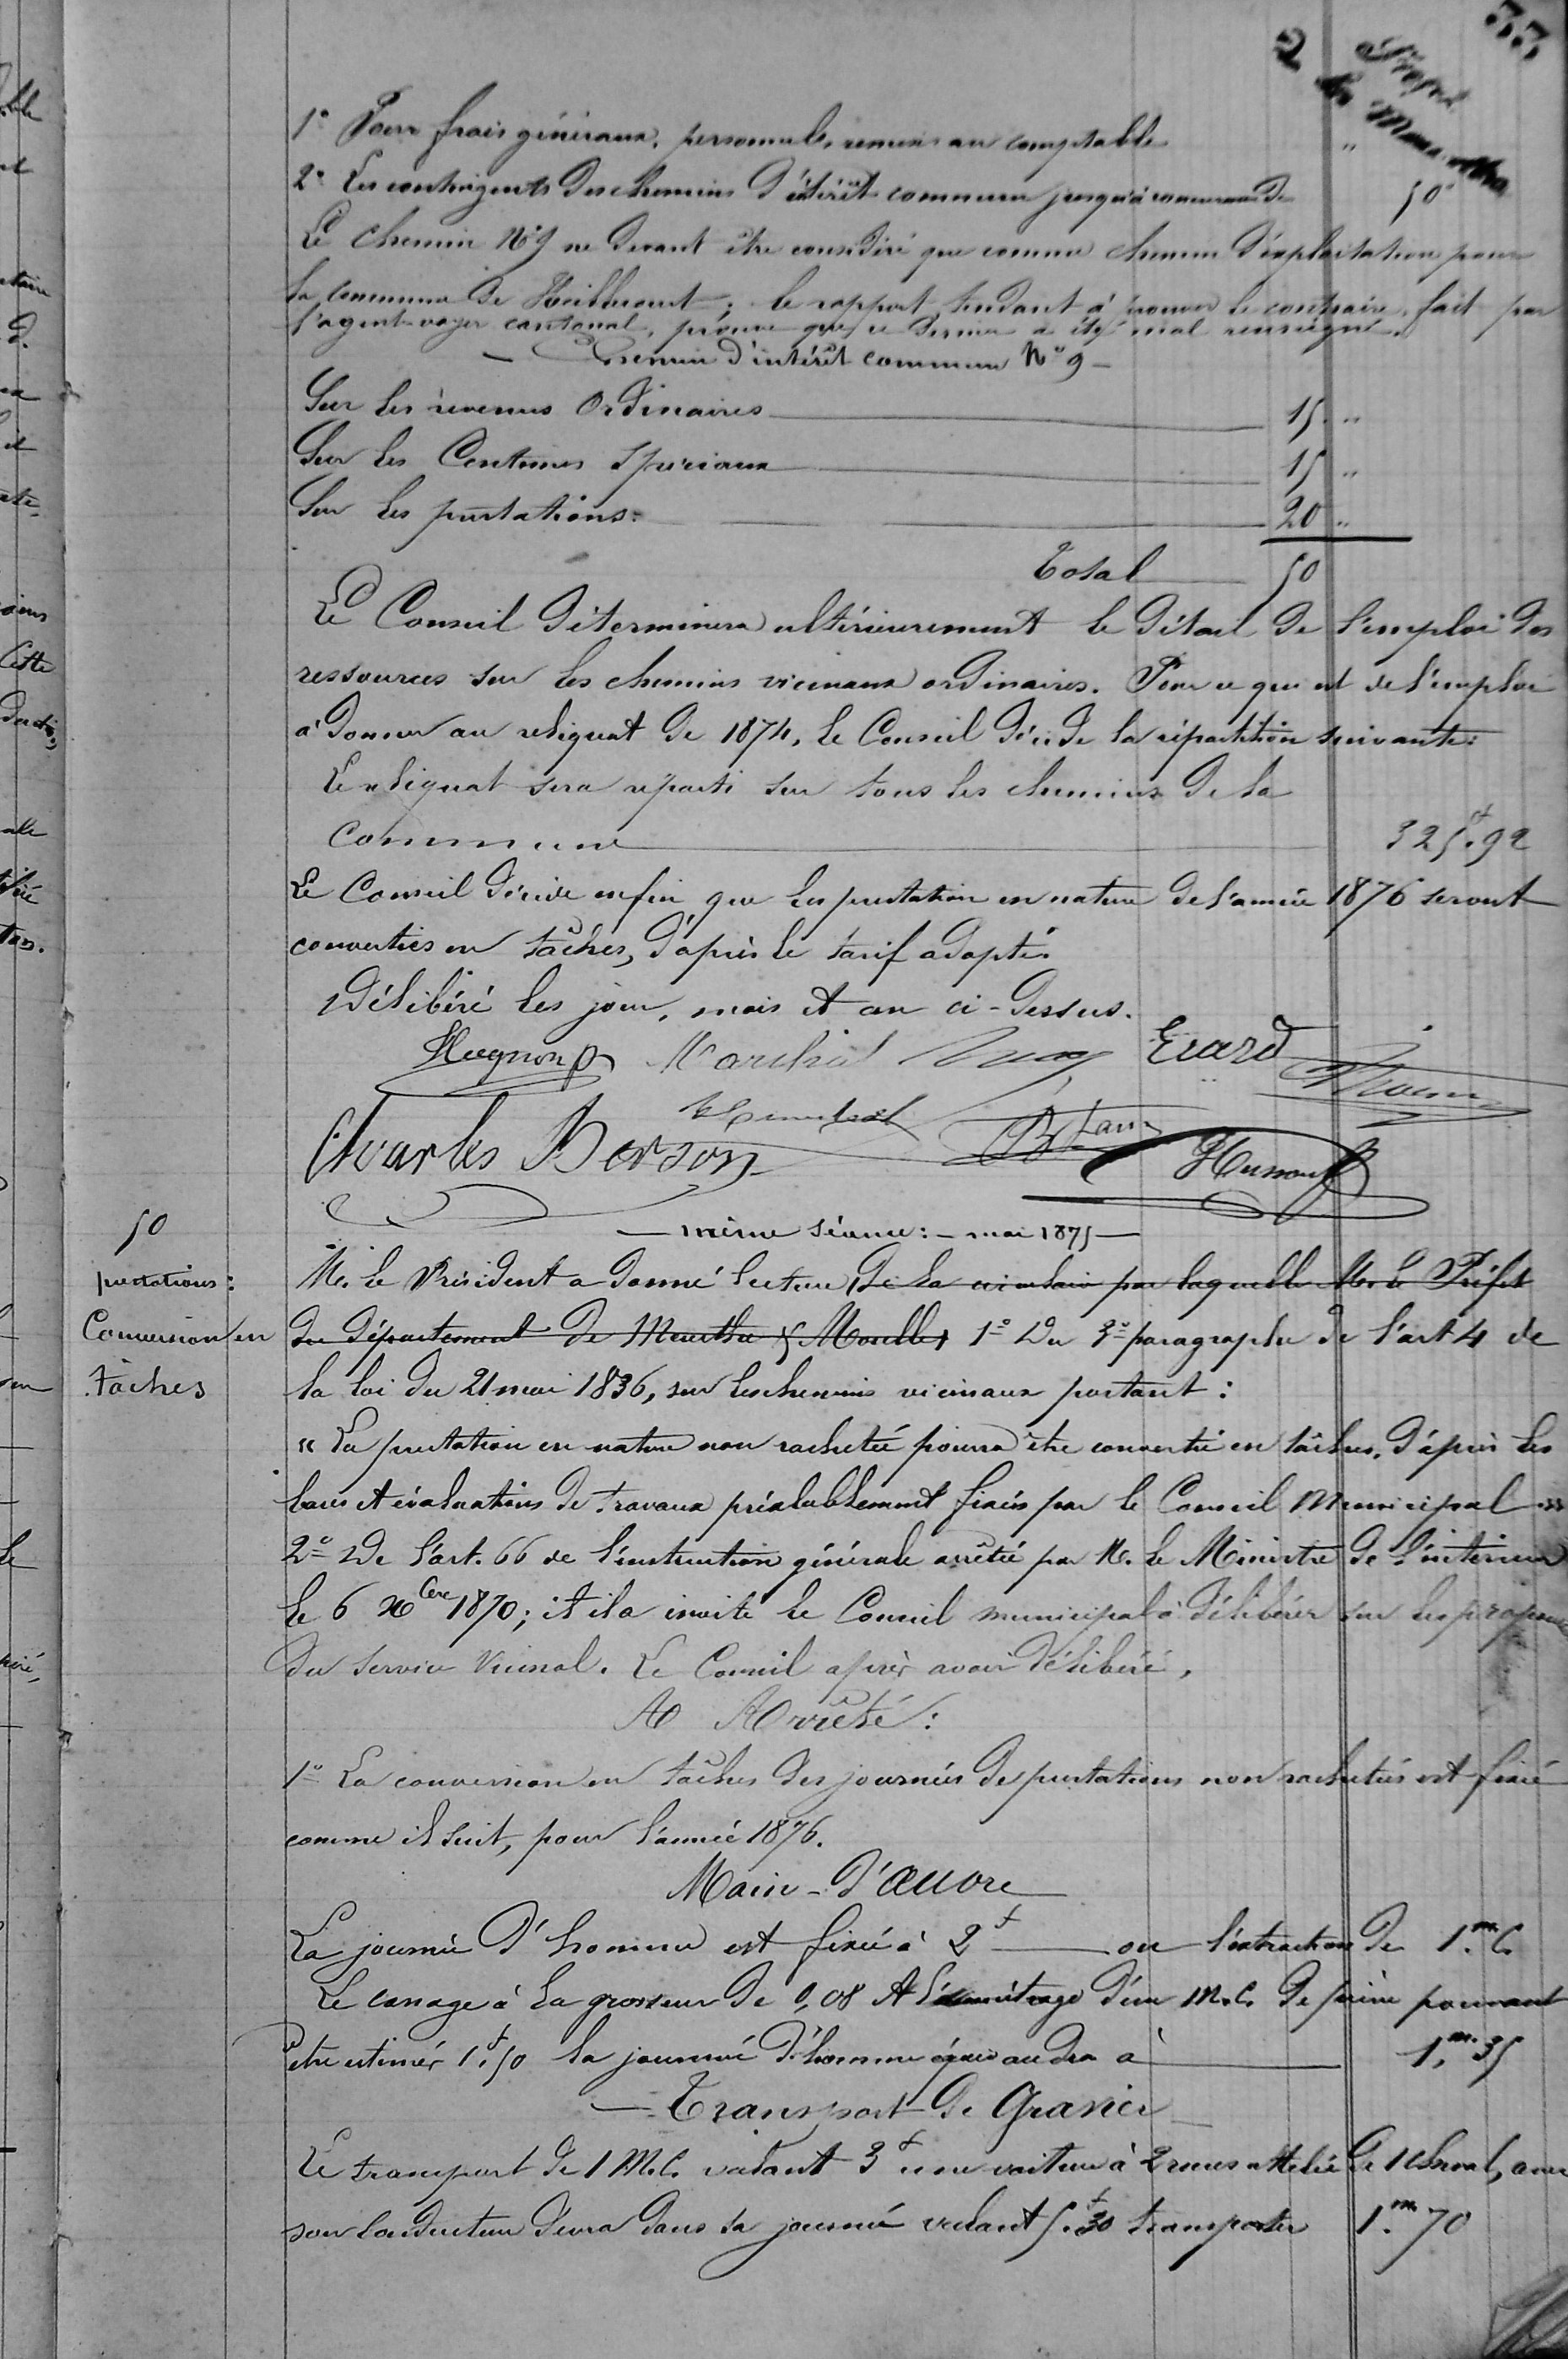 33
2
1° Pour frais généraux, personnels, remises au comptable "
2° Les contingents des chemins d'intérêt commun jusqu'à concurrence de 50"
Le chemin N° 9 ne devant être considéré que comme chemin d'exploitation pour
la commune de ; le rapport tendant à prouver le contraire, fait par
l'agent-voyer cantonal, prouve que ce dernier a été mal renseigné.
— Chemin d'intérêt commun N° 9 —
Sur les revenus Ordinaires 15. "
Sur les Centimes Spéciaux 15 "
Sur les prestations: 20 "
Total 50
Le Conseil déterminera ultérieurement le détail de l'emploi des
ressources sur les chemins vicinaux ordinaires. Pour ce qui est de l'emploi
à donner au reliquat de 1874, le Conseil décide la répartition suivante:
Le reliquat sera réparti sur tous les chemins de la
Commune 325f.92
Le Conseil décide enfin que les prestation en nature de l'année 1876 seront
converties en tâches, d'après le tarif adopté.
Délibéré les jour, mois et an ci-dessus.
Hugnon Marchal Erard
Charles Berson Husson
— même séance: — mai 1875 —
50
prestations:
Conversion en
tâches
M. le Président a donné lecture de la circulaire par laquelle M. le Préfet
du département de Meurthe & Moselle 1° Du 3e paragraphe de l'art 4 de
la loi du 21 mai 1836, sur les chemins vicinaux portant:
" La prestation en nature non rachetée pourra être convertie en tâches, d'après les
bases et évaluations de travaux préalablement fixées par le Conseil Municipal "
2° De l'art. 66 de l'instruction générale arrêtée par M. le Ministre de l'intérieur
le 6 Xbre 1870; et il a invité le Conseil municipal à délibérer sur les
du service Vicinal. Le Conseil après avoir délibéré,
A Arrêté:
1° La conversion en tâches des journées de prestations non rachetées est fixée
comme il suit, pour l'année 1876.
Main-d'Œuvre
La journée d'homme est fixée à 2f — ou l'extraction de 1.m C.
Le cassage à la grosseur de 0,08 et l'emmétrage d'un M.C. de pierre pouvant
être estimés 1f.50 la journée d'homme équivaudra à 1,m 35
— Transport de Gravier
Le transport de 1 M.C. valant 3f une voiture à 2 roues attelée de 1 cheval, avec
son Conducteur devra dans sa journée valant 5.f30 transporter 1.m 70